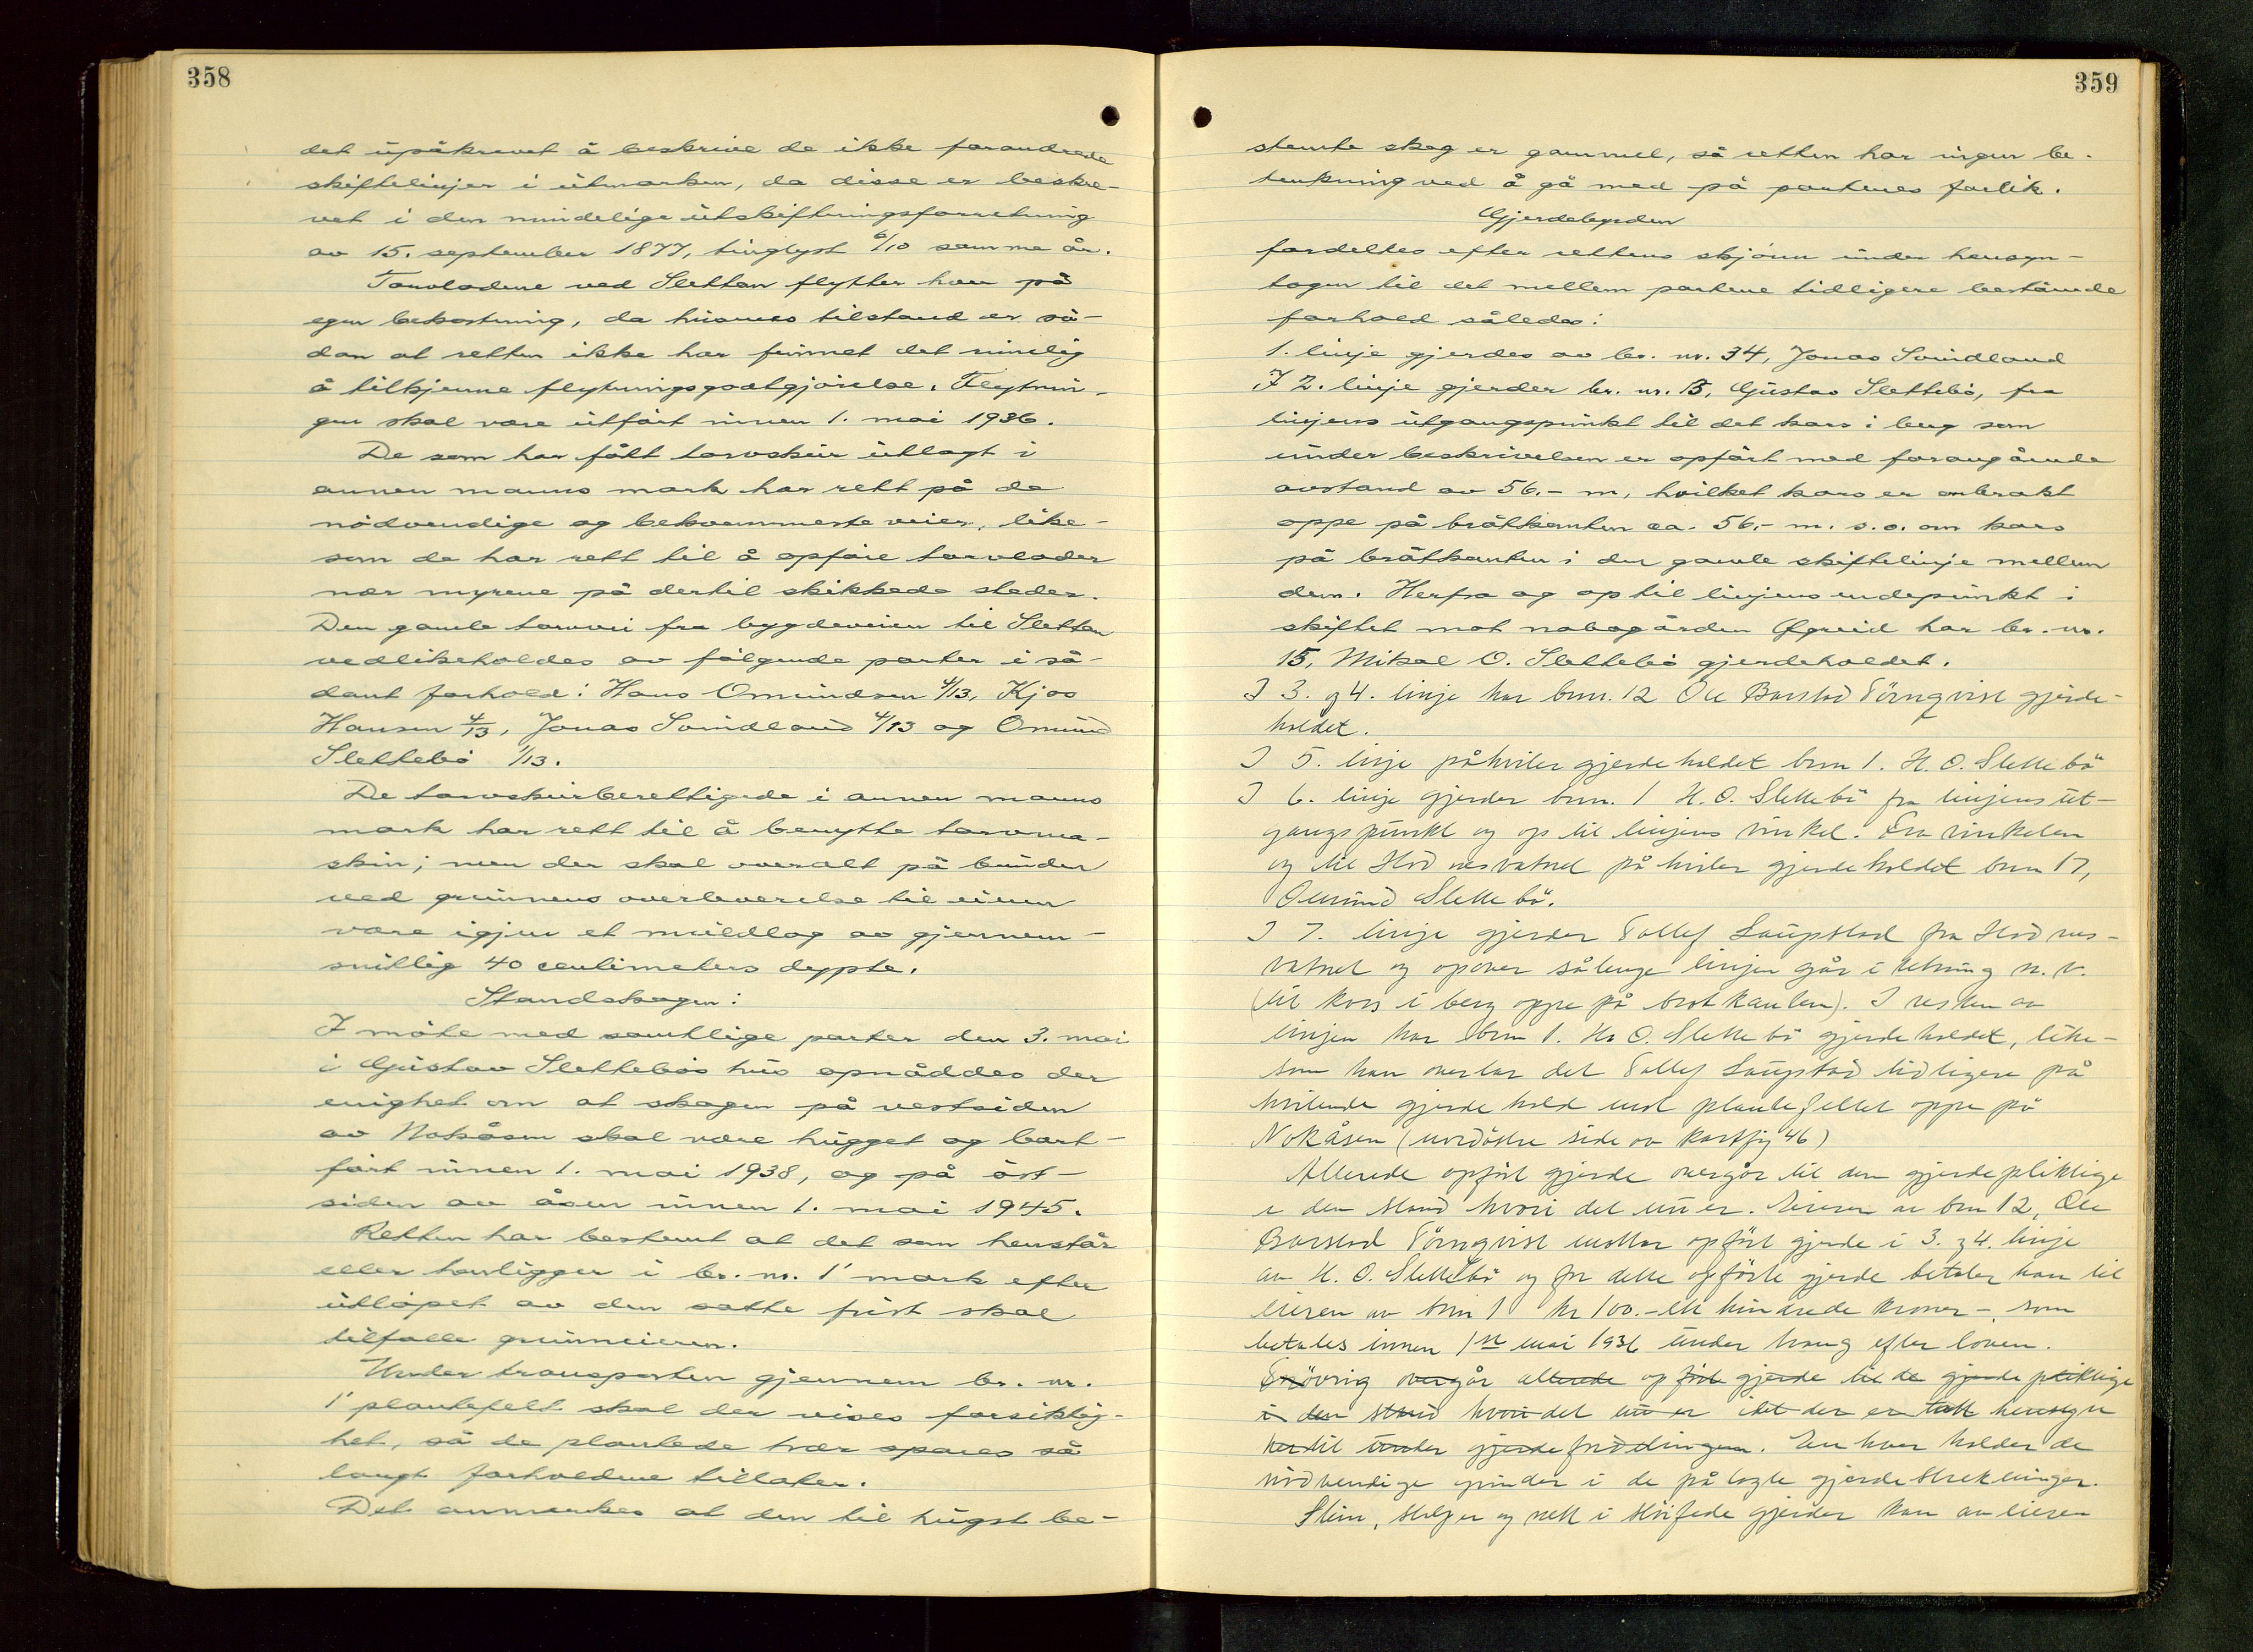 358
det upåkrevet å beskrive de ikke forandrede
skiftelinjer i utmarken, da disse er beskre-
vet i den mindelige utskiftningsforretning
av 15. september 1877, tinglyst 6/10 samme år.
Torvladene ved Sletten flytter hver på
egen bekostning, da husenes tilstand er så-
dan at retten ikke har funnet det rimelig
å tilkjenne flytningsgodtgjörelse. Flytnin-
gen skal være utfört innen 1. mai 1936.
De som har fått torvskur utlagt i
annen manns mark har rett på de
nödvendige og bekvemmeste veier, like-
som de har rett til å opföre torvlader
nær myrene på dertil skikkede steder.
Den gamle torvvei fra bygdeveien til Sletten
vedlikeholdes av fölgende parter i så-
dant forhold: Hans Omundsen 4/13, Kjos
Hansen 4/13, Jonas Svindland 4/13 og Omund
Slettebö 1/13.
De torvskurberettigede i annen manns
mark har rett til å benytte torvma-
skin; men der skal overalt på bunden
ved grunnens overleverelse til eieren
være igjen et muldlag av gjennem-
snittlig 40 centimeters dyppte.
Standskogen:
I möte med samtlige parter den 3. mai
i Gustav Slettebös hus opnåddes der
enighet om at skogen på vestsiden
av Nokåsen skal være hugget og bort-
fört innen 1. mai 1938, og på öst-
siden av åsen innen 1. mai 1945.
Retten har bestemt at det som henstår
eller henligger i br. nr. 1' mark efter
utlöpet av den satte frist skal
tilfalle grunneieren.
Under transporten gjennem br. nr.
1' plantefelt skal der vises forsiktig-
het, så de plantede trær spares så
langt forholdene tillater.
Det anmerkes at den til hugst be-
359
stemte skog er gammel, så retten har ingen be-
tenkning ved å gå med på partenes forlik.
Gjerdebyrden
fordeltes efter rettens skjönn under hensyn-
tagen til det mellem partene tidligere bestående
forhold således:
1. linje gjerdes av br. nr. 34, Jonas Svindland
I 2. linje gjerder br. nr. 13, Gustav Slettebö, fra
linjens utgangspunkt til det kors i berg som
under beskrivelsen er opfört med forangående
avstand av 56,- m, hvilket kors er anbrakt
oppe på bråtkanten ca. 56,- m. s.o. om kors
på bråtkanten i den gamle skiftelinje mellem
dem. Herfra og op til linjens endepunkt i
skiftet mot nabogården Øgreid har br. nr.
15, Mikal O. Slettebö gjerdeholdet.
I 3. og 4. linje har brnr. 12 Ole Barstad Törnqvist gjerde-
holdet.
I 5. linje påhviler gjerdeholdet brnr 1. H. O. Slettebö
I 6. linje gjerder brnr. 1 H. O. Slettebö fra linjens ut-
gangspunkt og op til linjens vinkel. Fra vinkelen
og til vatnet påhviler gjerdeholdet brnr 17,
Omund Slettebö.
I 7. linje gjerder Tollef Laupstad fra
vatnet og opover sålenge linjen går i retning n. v.
(til kors i berg oppe på brotkanten). I resten av
linjen har brnr 1. H. O. Slettebö gjerdeholdet, like-
som han overtar det Tollef Laupstad tidligere på
hvilende gjerdehold mot plantefeltet oppe på
Nokåsen (nordöstre side av kartfig 46)
Allerede opfört gjerde overgår til den gjerdepliktige
i den stand hvori det nu er. Eieren av brnr 12, Ole
Barstad Törnqvist mottar opfört gjerde i 3. og 4. linje
av H. O. Slettebö og for dette opförte gjerde betaler han til
eieren av brnr 1 kr 100.- ett hundrede kroner -, som
betales innen 1ste mai 1936 under tvang efter loven.
Forövrig overgår allerede opfört gjerde til de gjerdepliktige
i den stand hvori det nu er idet der er tatt hensyn
hertil under gjerdefordelingen. Enhver holder de
nödvendige grinder i de pålagte gjerdestrekninger.
Stein, stolper og nett i slöifede gjerder kan av eieren